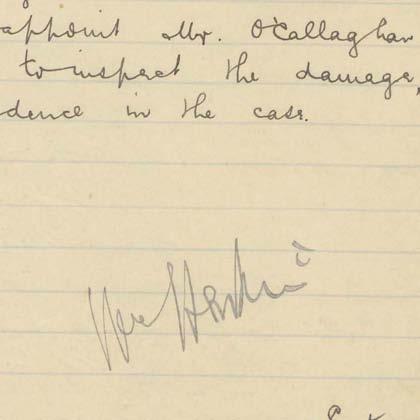 appoint Mr. O'Callaghan
to inspect the damage,
dence in the case.